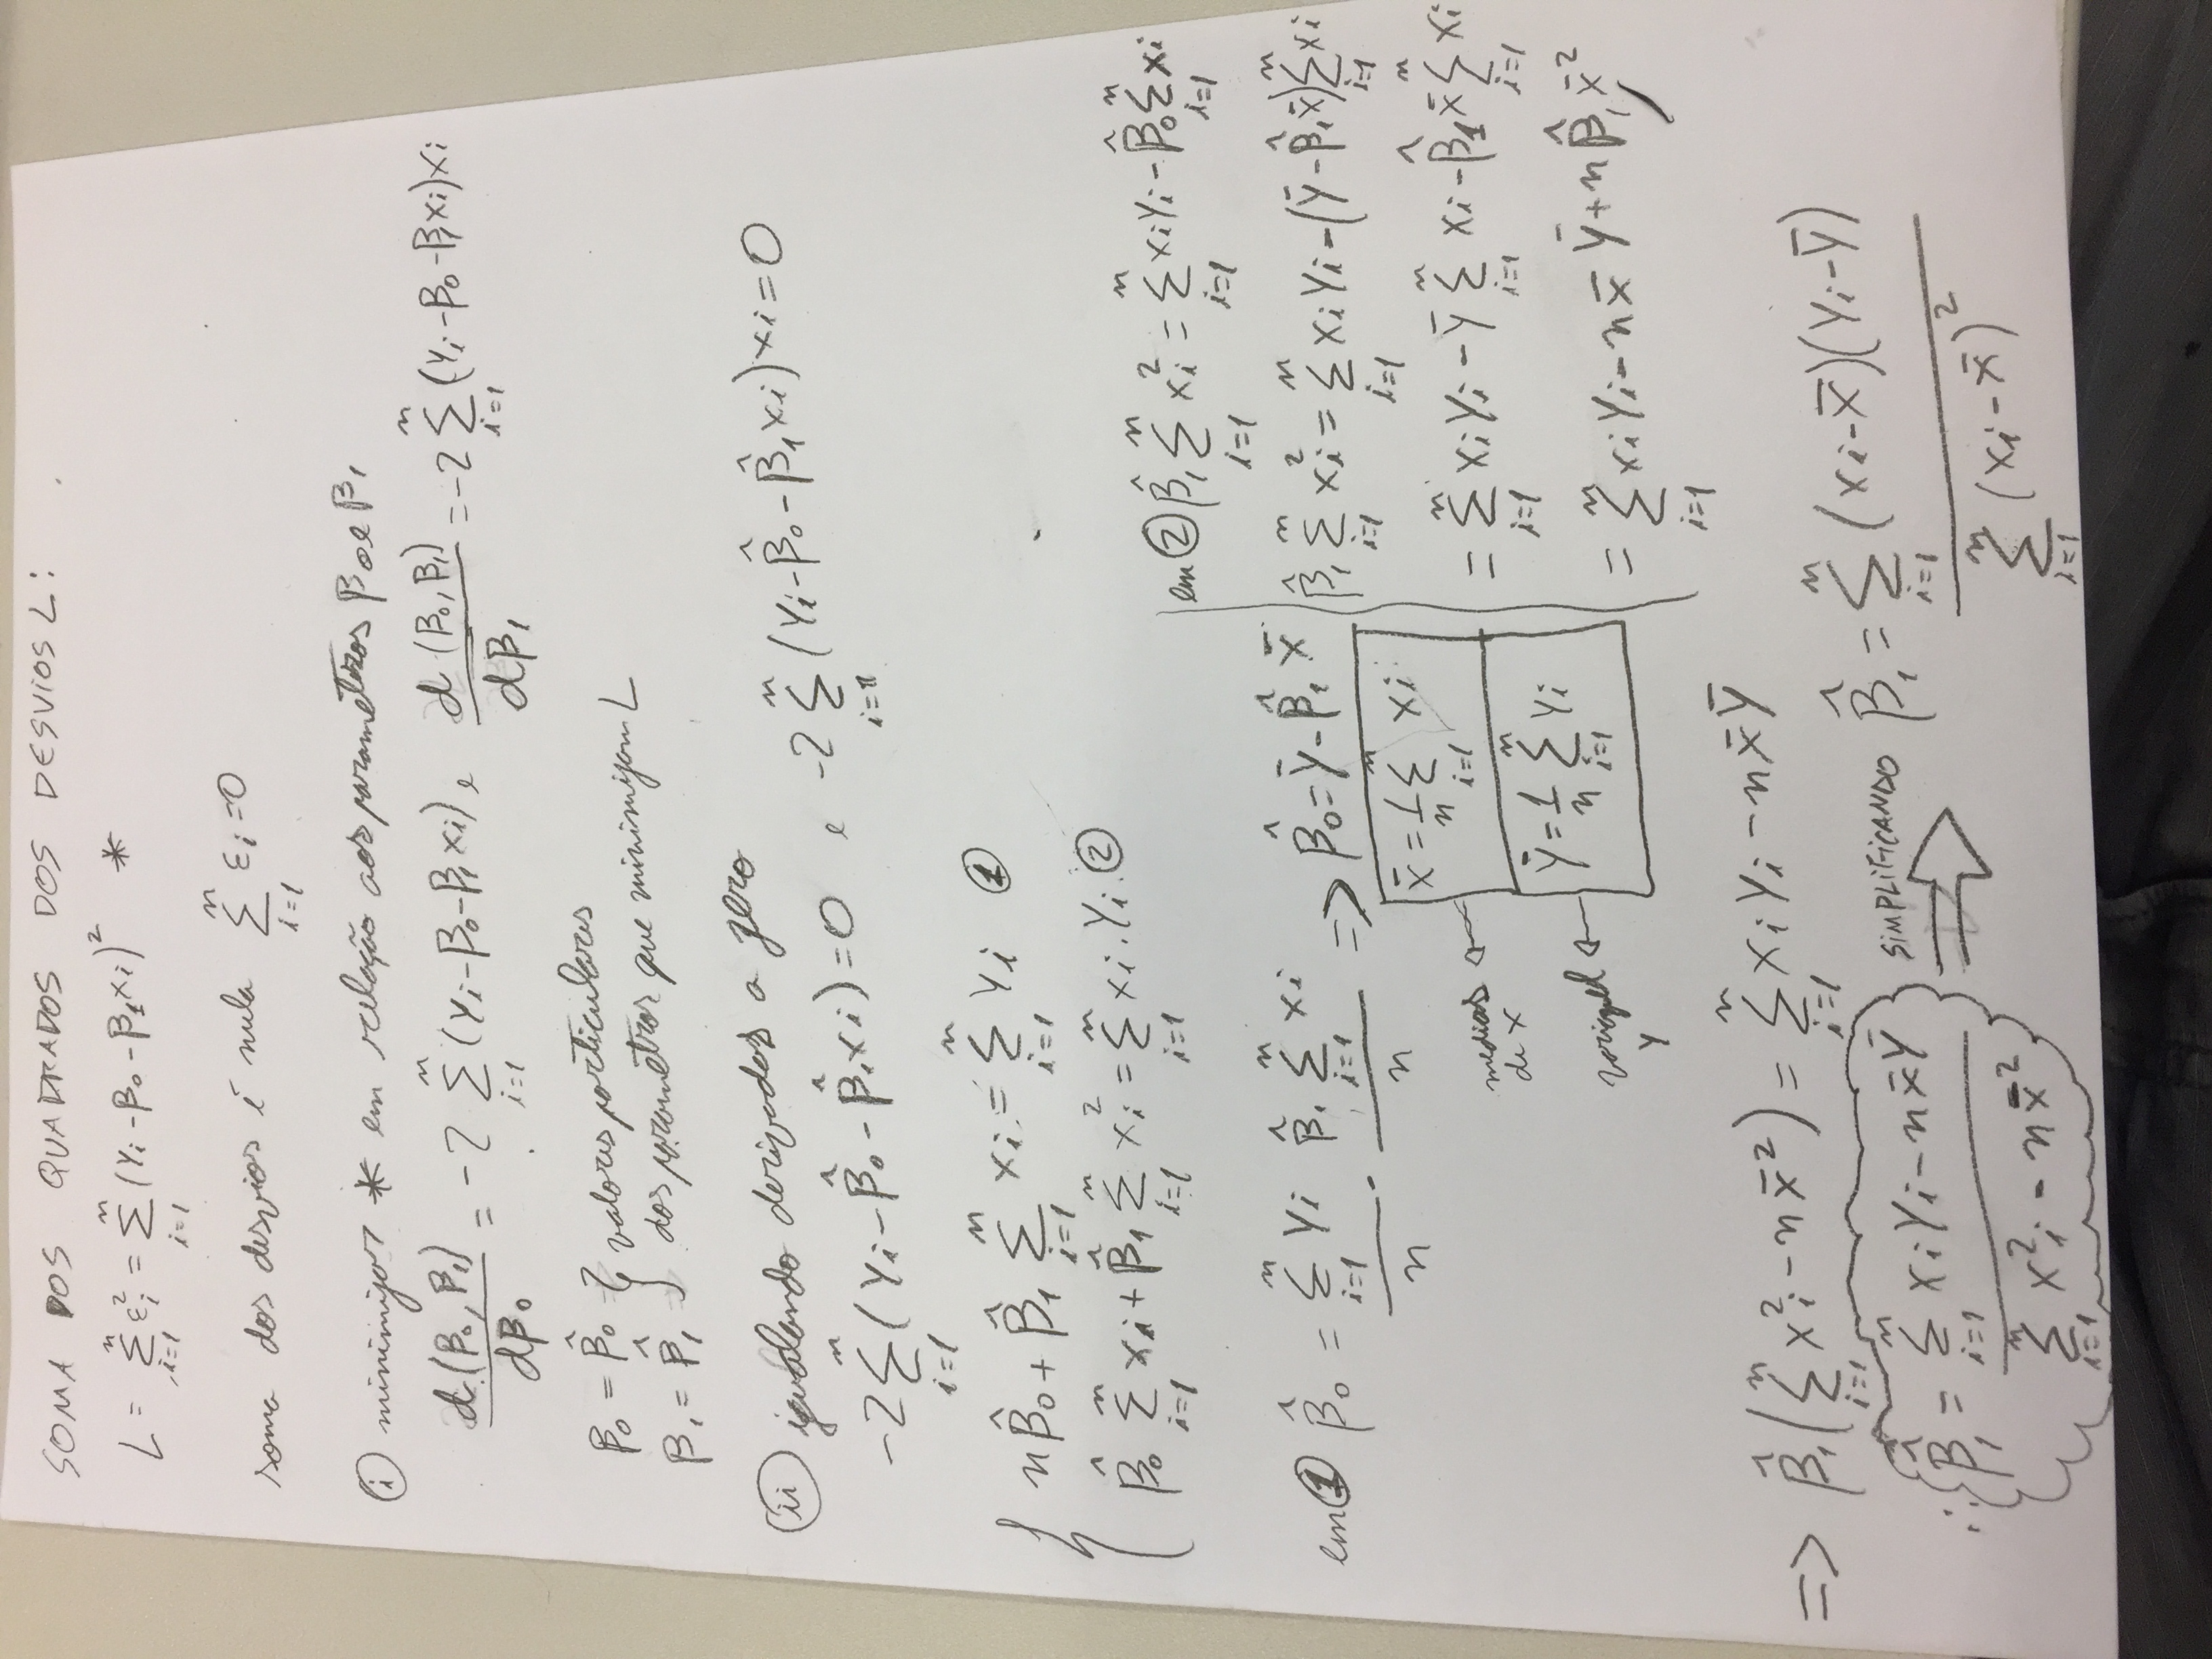 SOMA DOS QUADRADOS DOS DESVIOS L:
L = ∑_{i=1}^{n} ε_i^2 = ∑_{i=1}^{n} (Yi - β0 - β1xi)^2 *
soma dos desvios é nula ∑_{i=1}^{n} εi = 0
(i) minimizar * em relação aos parametros β0 e β1
d(β0, β1)/dβ0 = -2 ∑_{i=1}^{n} (Yi - β0 - β1xi) e d(β0, β1)/dβ1 = -2 ∑_{i=1}^{n} (Yi - β0 - β1xi)xi
β0 = β̂0 } valores particulares
β1 = β̂1 } dos parametros que minimizam L
(ii) igualando derivadas a zero
-2 ∑_{i=1}^{n} (Yi - β̂0 - β̂1xi) = 0 e -2 ∑_{i=1}^{n} (Yi - β̂0 - β̂1xi)xi = 0
{ nβ̂0 + β̂1 ∑_{i=1}^{n} xi = ∑_{i=1}^{n} Yi (1)
β̂0 ∑_{i=1}^{n} xi + β̂1 ∑_{i=1}^{n} x_i^2 = ∑_{i=1}^{n} xi.Yi (2)
em (1) β̂0 = ∑_{i=1}^{n} Yi / n - β̂1 ∑_{i=1}^{n} xi / n => β̂0 = ȳ - β̂1 x̄
x̄ = 1/n ∑_{i=1}^{n} xi
medias de x
ȳ = 1/n ∑_{i=1}^{n} Yi
variavel y
em (2) β̂1 ∑_{i=1}^{n} x_i^2 = ∑_{i=1}^{n} xiYi - β̂0 ∑_{i=1}^{n} xi
β̂1 ∑_{i=1}^{n} x_i^2 = ∑_{i=1}^{n} xiYi - (ȳ - β̂1x̄) ∑_{i=1}^{n} xi
= ∑_{i=1}^{n} xiYi - ȳ ∑_{i=1}^{n} xi - β̂1x̄ ∑_{i=1}^{n} xi
= ∑_{i=1}^{n} xiYi - nx̄ȳ + nβ̂1x̄^2
=> β̂1(∑_{i=1}^{n} x_i^2 - nx̄^2) = ∑_{i=1}^{n} xiYi - nx̄ȳ
∴ β̂1 = (∑_{i=1}^{n} xiYi - nx̄ȳ) / (∑_{i=1}^{n} x^2i - nx̄^2)
SIMPLIFICANDO
β̂1 = ∑_{i=1}^{n} (xi - x̄)(Yi - ȳ) / ∑_{i=1}^{n} (xi - x̄)^2